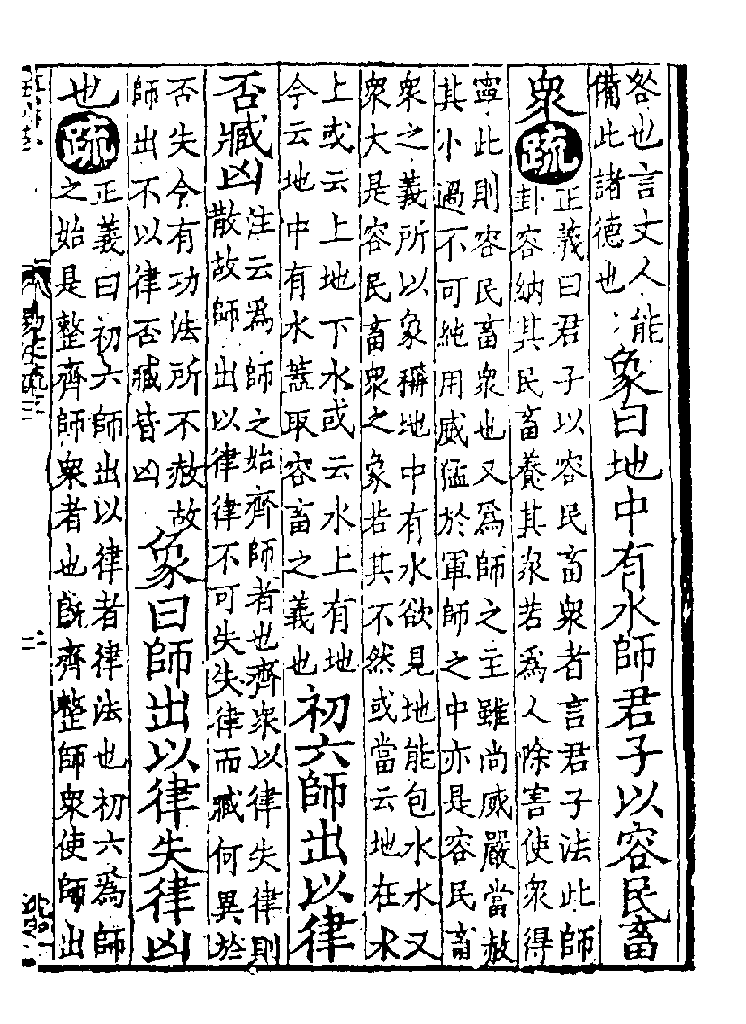 咎也言丈人能
備此諸德也
象曰地中有水師君子以容民畜
衆
疏
正義曰君子以容民畜衆者言君子法此師
卦容納其民畜養其衆若爲人除害使衆得
寧此則容民畜衆也又爲師之主雖尚威嚴當赦
其小過不可純用威猛於軍師之中亦是容民畜
衆之義所以象稱地中有水欲見地能包水水又
衆大是容民畜衆之象若其不然或當云地在水
上或云上地下水或云水上有地
今云地中有水蓋取容畜之義也
初六師出以律
否臧凶
注云爲師之始齊師者也齊衆以律失律則
散故師出以律律不可失失律而臧何異於
否失令有功法所不赦故
師出不以律否臧皆凶
象曰師出以律失律凶
也
疏
正義曰初六師出以律者律法也初六爲師
之始是整齊師衆者也旣齊整師衆使師出